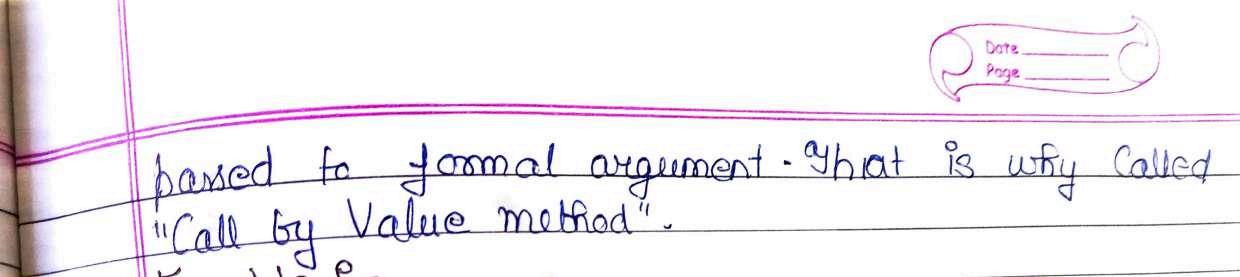 Date
Page
passed to formal argument. That is why Called
"Call by Value method".